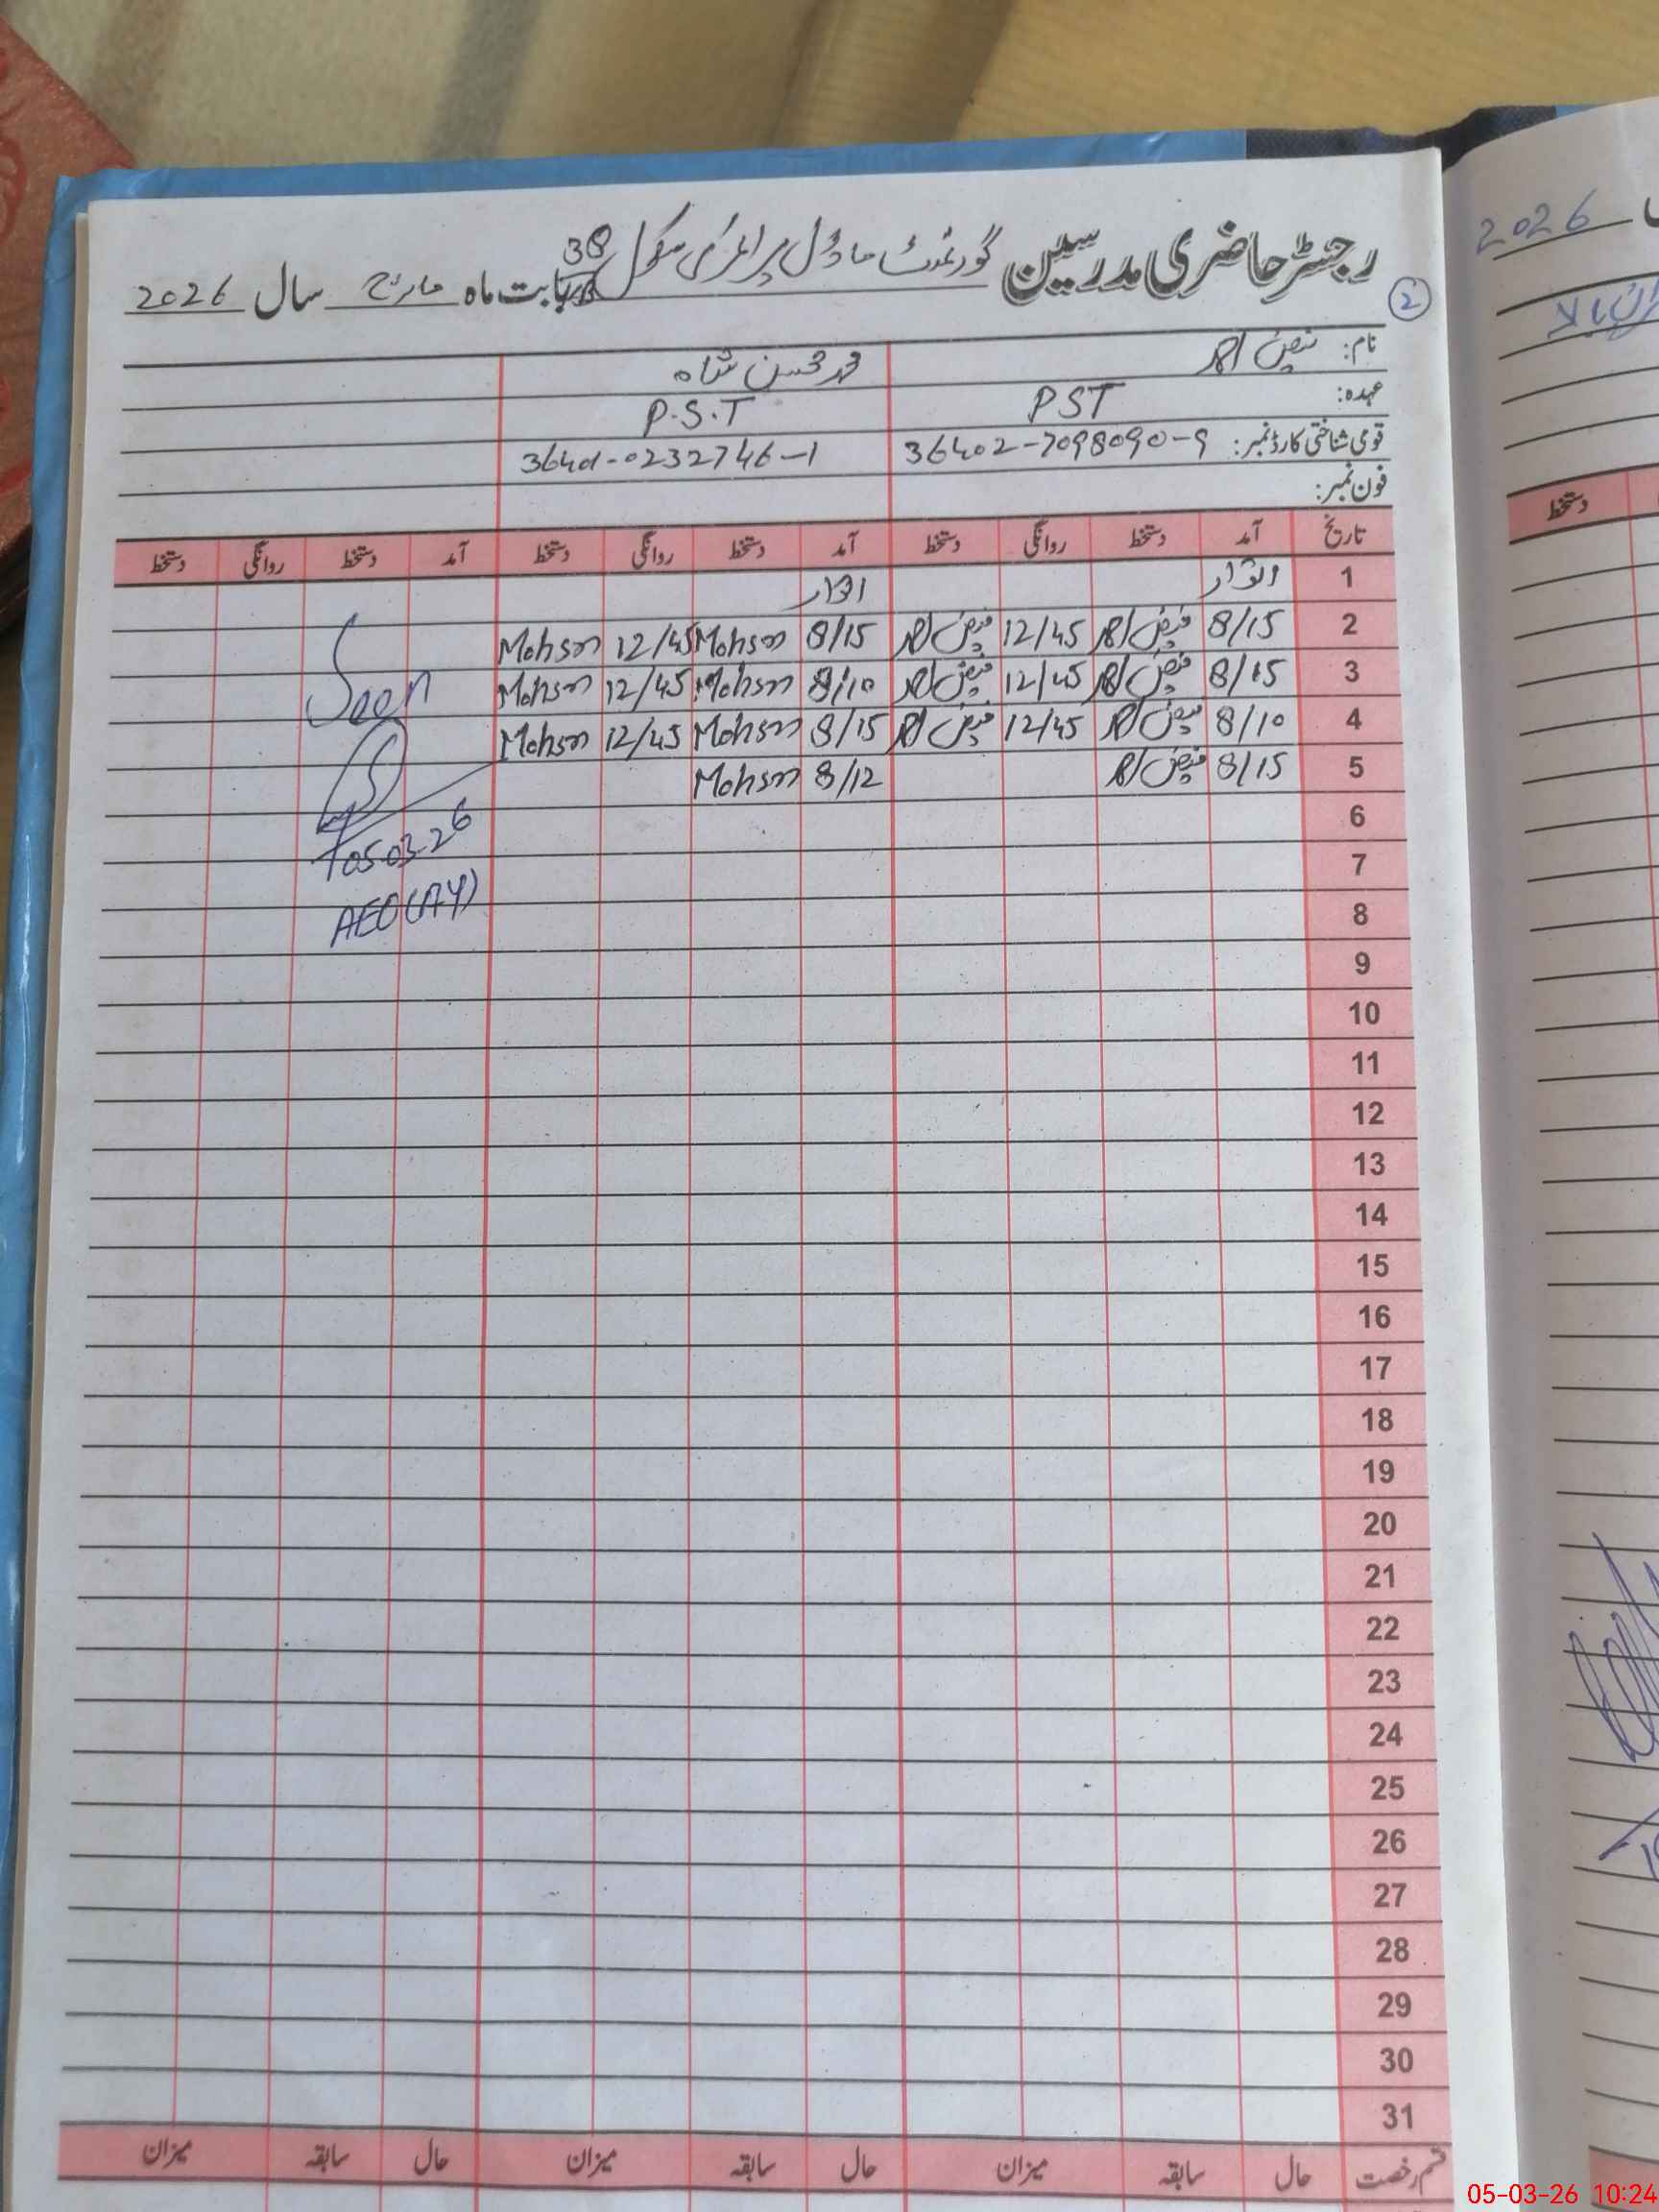 رجسٹر حاضری مدرسین گورنمنٹ ماڈل پرائمری سکول 38 بابت ماہ مارچ سال 2026
2
نام: فیض احمد محمد محسن شاہ
عہدہ: PST P.S.T
قومی شناختی کارڈ نمبر: 36402-7098090-9 36401-0232746-1
فون نمبر:
تاریخ آمد دستخط روانگی دستخط آمد دستخط روانگی دستخط آمد دستخط روانگی دستخط
1 اتوار اتوار
2 8/15 فیض احمد 12/45 فیض احمد 8/15 Mohsin 12/45 Mohsin
3 8/15 فیض احمد 12/45 فیض احمد 8/10 Mohsin 12/45 Mohsin
Seen
4 8/10 فیض احمد 12/45 فیض احمد 8/15 Mohsin 12/45 Mohsin
5 8/15 فیض احمد 8/12 Mohsin
6
05-03-26
7
8
AEO (AY)
9
10
11
12
13
14
15
16
17
18
19
20
21
22
23
24
25
26
27
28
29
30
31
قسم رخصت حال سابقہ میزان حال سابقہ میزان حال سابقہ میزان
2026
دستخط
05-03-26 10:24